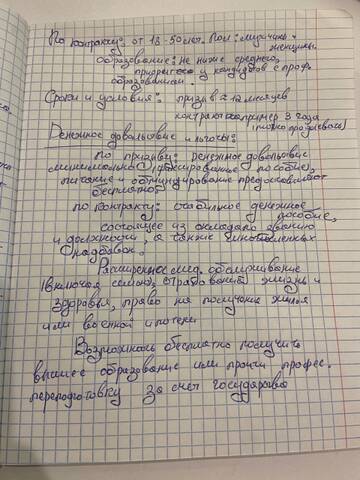 По контракту: от 18-50 лет. Пол: мужчины и
женщины
Образование: не ниже среднего,
приоритет у кандидатов с проф.
образованием.
Сроки и условия: призыв 12 месяцев
контракт например 3 года
(можно продлевать)
Денежное довольствие и льготы:
по призыву: денежное довольствие
минимально (фиксированное пособие),
питание и обмундирование предоставляют
бесплатно
по контракту: стабильное денежное
пособие,
состоящее из оклада по званию
и должности, а также
надбавок.
Расширенное мед. обслуживание
(включая семью, страхование жизни и
здоровья, право на получение жилья
или военной ипотеки
Возможность бесплатно получить
высшее образование или пройти профес.
переподготовку за счет государства